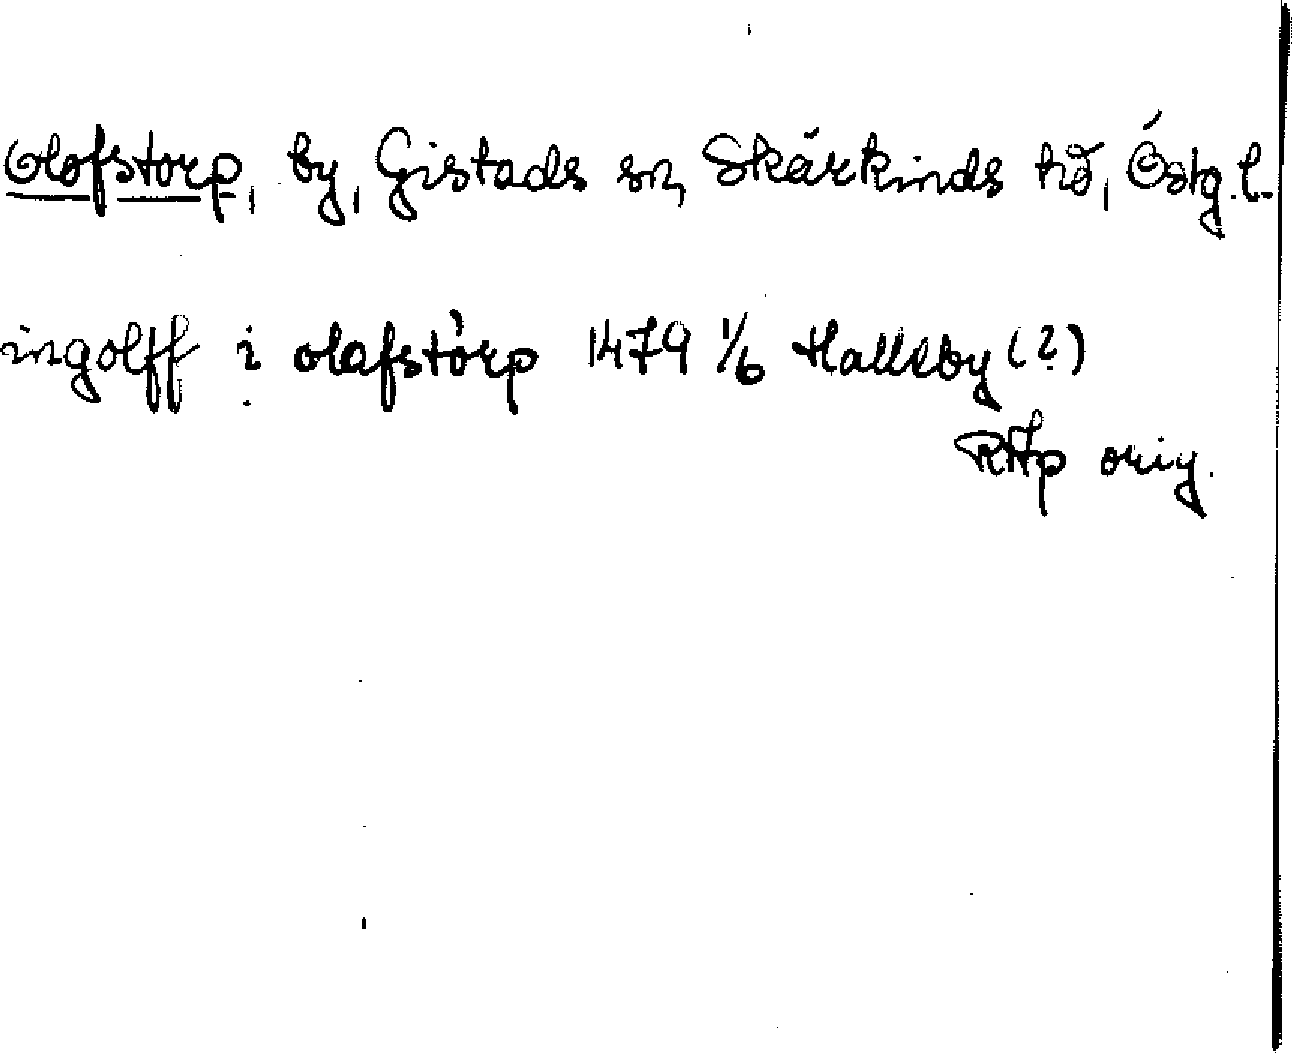 Olofstorp, by, Gistads sn, Skärkinds hd, Östg.l.
ingolff i olafstorp 1479 1/6 Halleby (?)
RAp orig.